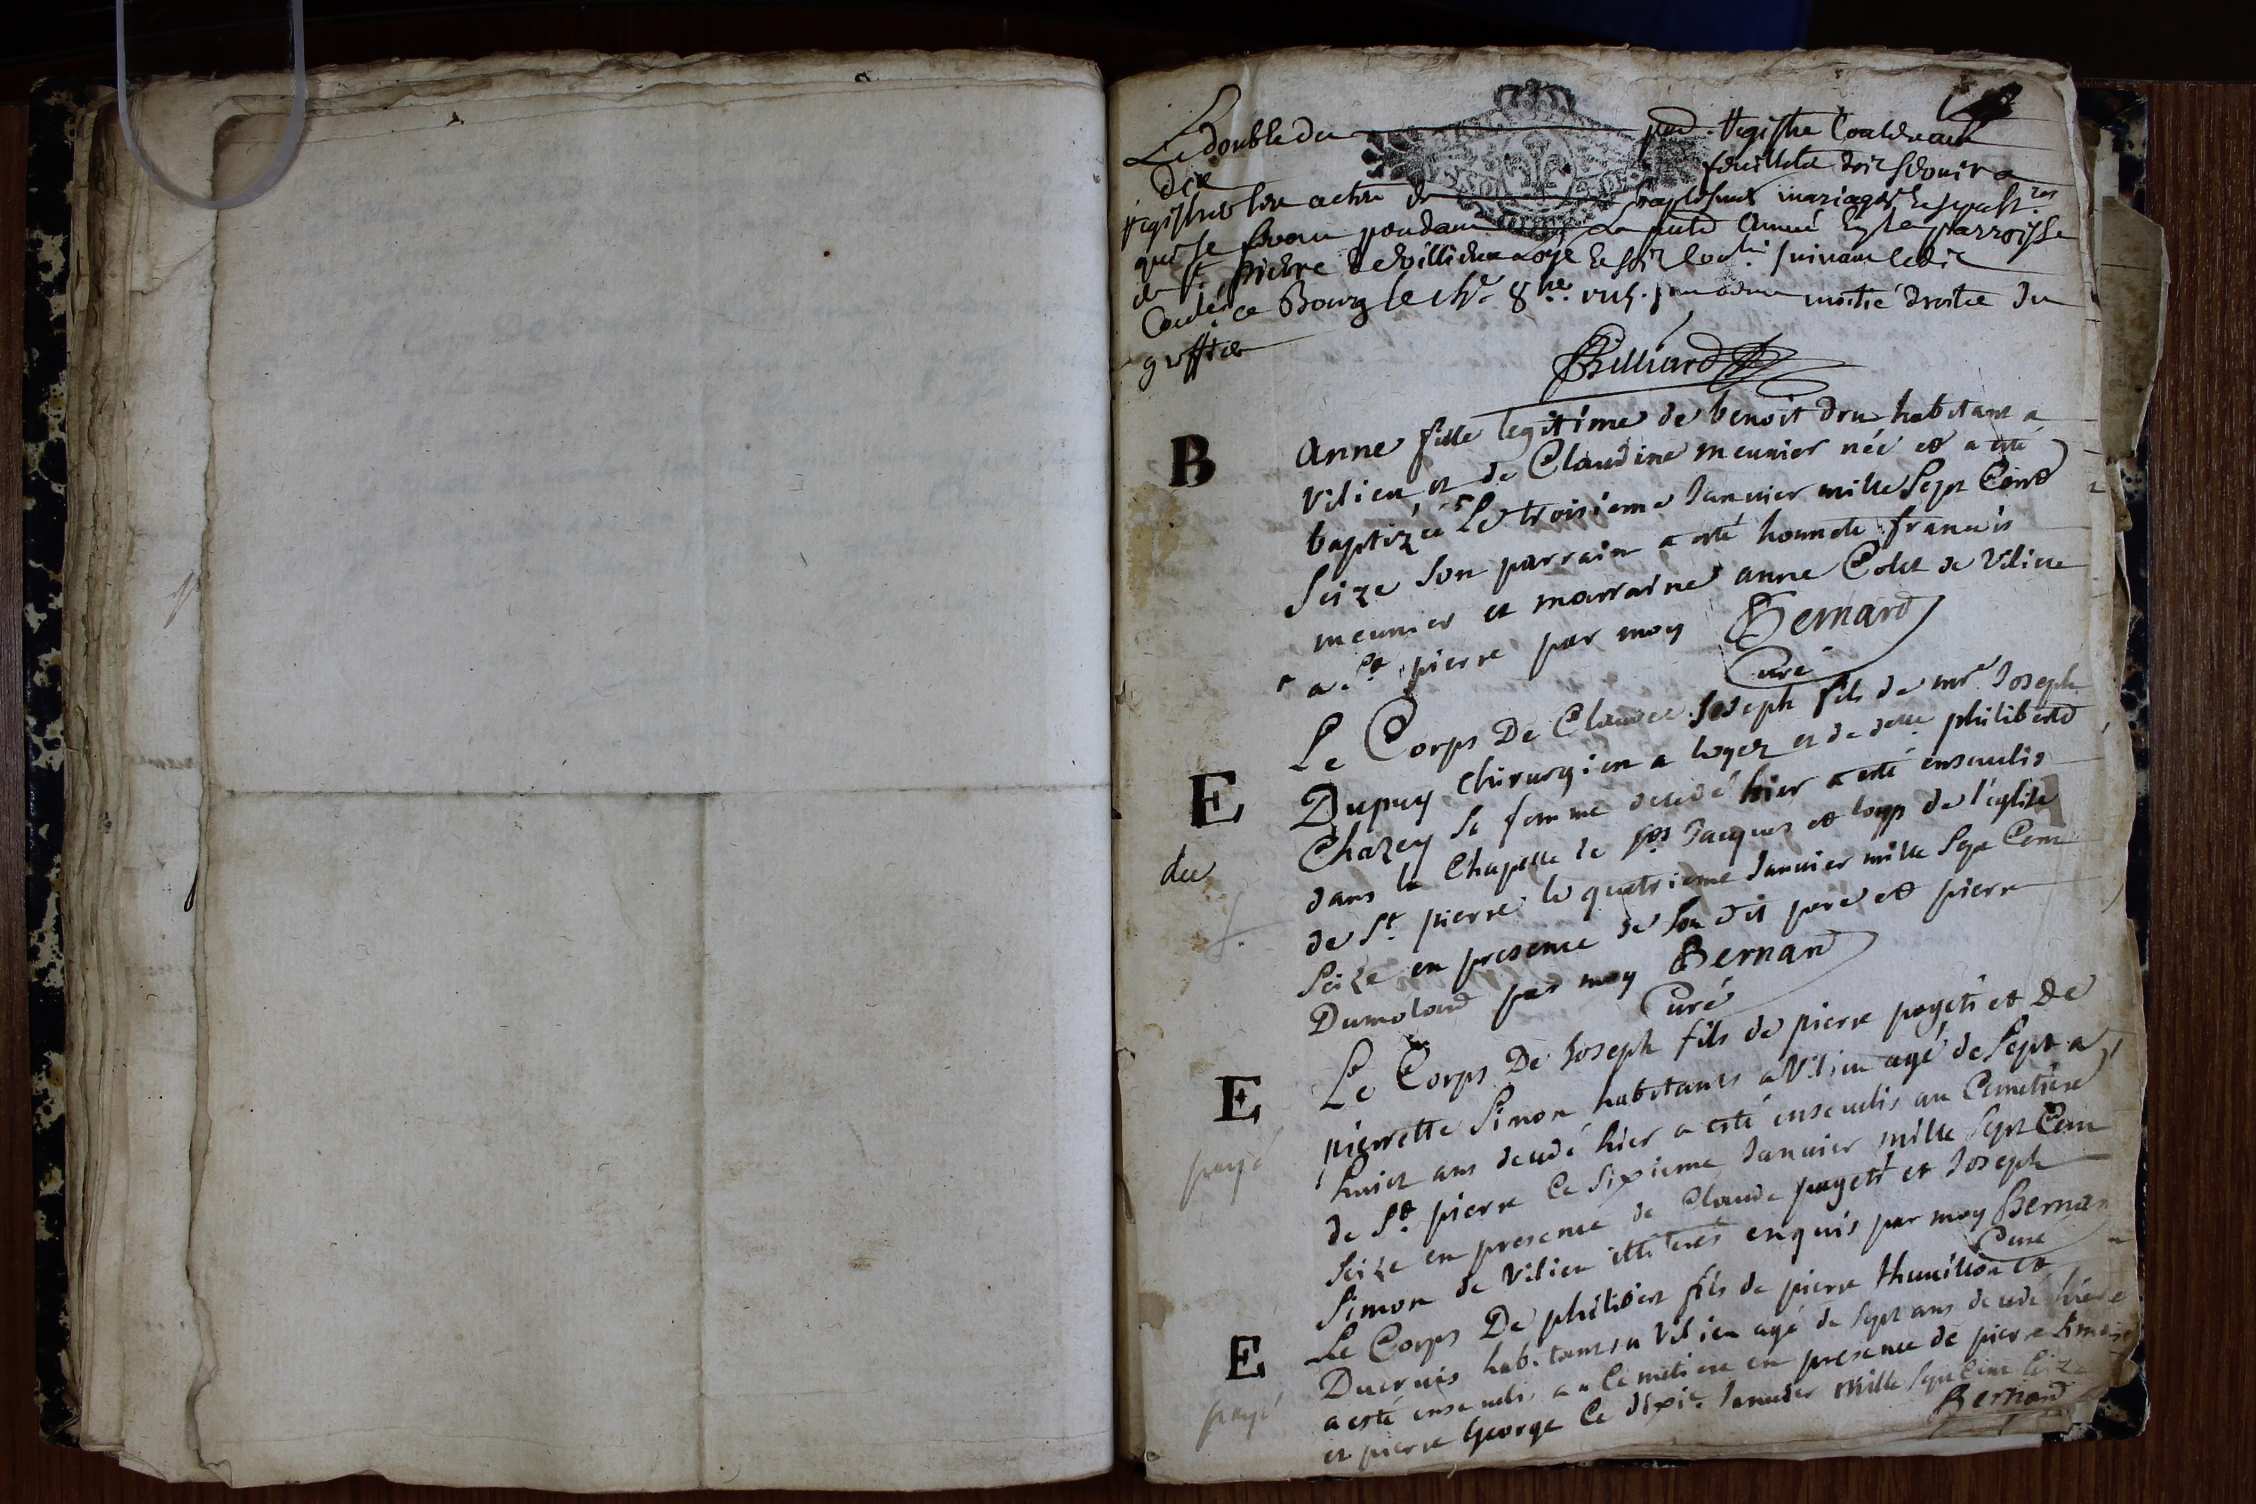 Le double du pnt Registre Contenant
dix feuillets doit servir a
registrer les actes de baptesmes mariages et sepultres
qui se feront pendant la pnte année en la parroisse
de St pierre de Villieu Loye
Bourg le 8bre moitié droits du
greffier
Billiard
B
Anne fille legitime de benoit dru habitant a
Vilieu et de Claudine meunier née et a esté
baptizée Le troisieme Janvier mille Sept Cend
Seize Son parrain a esté honnete francois
meunier et marraine anne Colet de Vilieu
a St pierre par moy Bernard
Curé
E
du
Le Corps De Claude Joseph fils de mr Joseph
Dupuy Chirurgien a loyez et de delle philiberte
Chazey Sa femme decedé hier a esté enseveli
dans la Chapelle de Sts Jacques et loup de l'eglise
de St pierre le quatrieme Janvier mille Sept Cent
Seize en presence de Son dit pere et pierre
Dumoland par moy Bernard
Curé
E
payé
Le Corps De Joseph fils de pierre pageti et De
pierrette Simon habitants a Vilieu agé de Sept a
huict ans decedé hier a esté ensevelis au Cemetiere
de St pierre Ce Sixieme Janvier mille Sept Cent
Seize en presence de Claude pageti et Joseph
Simon de Vilieu illiterés enquis par moy Bernard
Curé
E
payé
Le Corps De philibert fils de pierre thuillon et
Ducruis habitants a Vilieu agé de Sept ans decedé hier
a esté enseveli au Cemetiere en presence de pierre Simon
et pierre George Ce dixie Janvier Mille Sept Cent Seize
Bernard